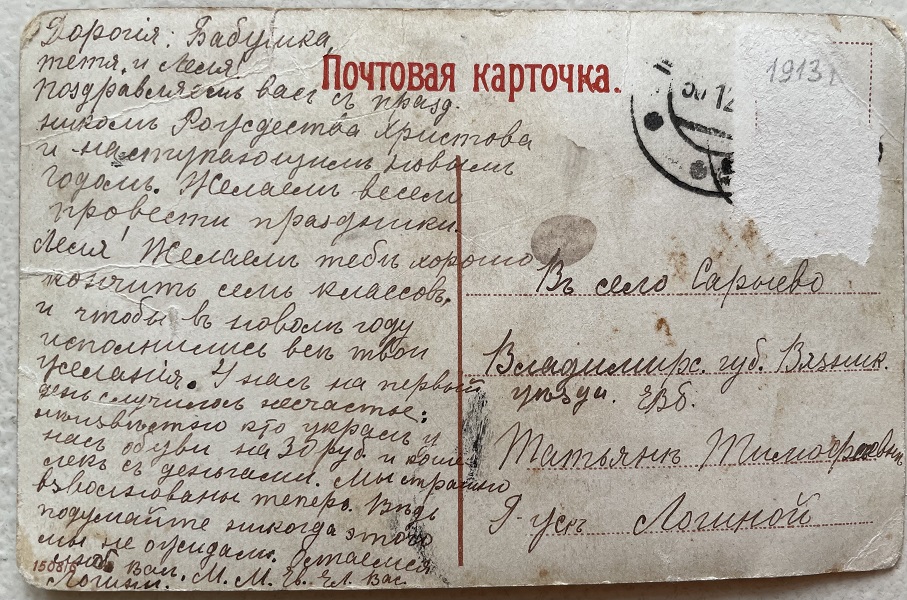 Почтовая карточка.
1913 г
30 12
Дорогія: Бабушка,
тетя, и Леля!
Поздравляемъ васъ съ празд.
никомъ Рождества Христова
и наступающимъ новымъ
годомъ. Желаемъ весело
провести праздники.
Леля! Желаемъ тебѣ хорошо
кончить семь классовъ,
и чтобы въ новомъ году
исполнились всѣ твои
желанія. У насъ на первый
день случилось несчастье:
неизвѣстно кто укралъ у
насъ обуви на 30 руб. и коше
лекъ съ деньгами. Мы страшно
взволнованы теперь. Вѣдь
подумайте никогда этого
мы не ожидали. Остаемся
Вас.
Логины. М. М. Е. Вас.
15086
Въ село Сарыево
Владимирс. губ. Вязник.
уѣзда. ЕВб.
Татьянѣ Тимофѣевнѣ
Логиной